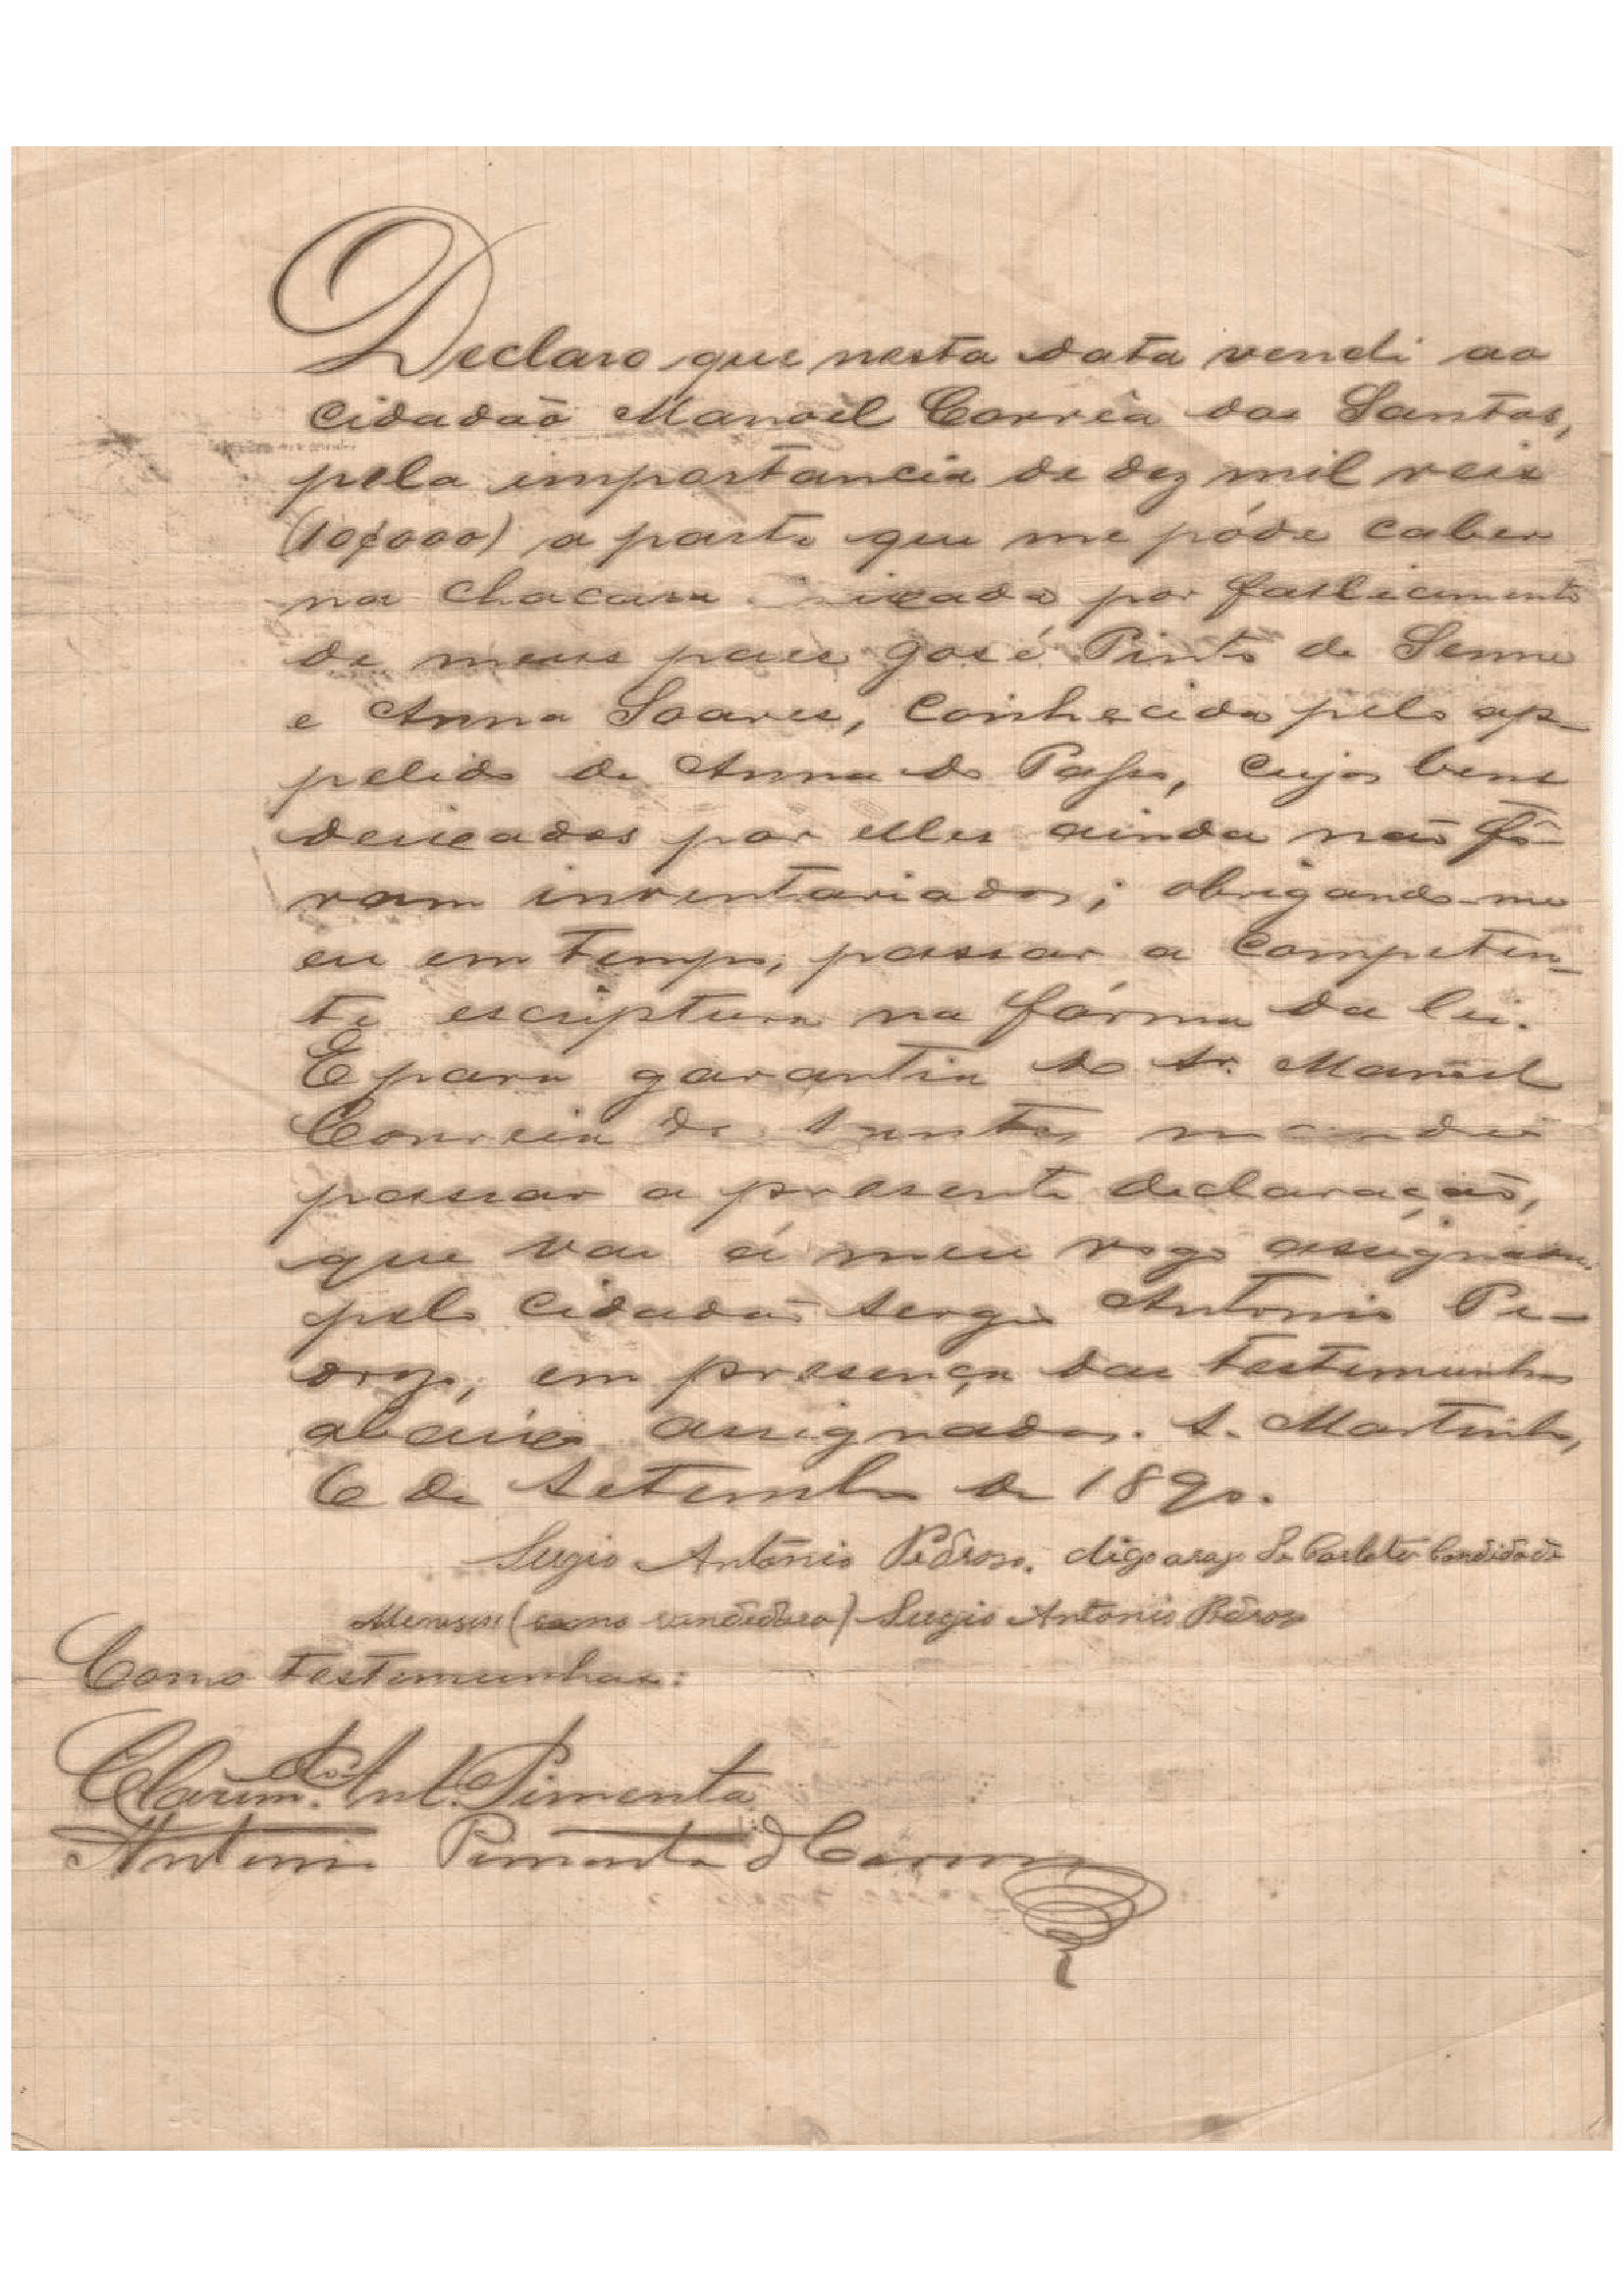 Declaro que nesta data vendi ao
cidadão Manoel Corrêa dos Santos,
pela importancia de dez mil reis
(10$000) a parte que me póde caber
na chacara deixada por fallecimento
de meus paes José Pinto de Senne
e Anna Soares, conhecida pelo ap-
pelido de Anna do Passo, cujos bens
deixados por elles ainda não fô-
ram inventariados; obrigando-me
eu em tempo, passar a competen-
te escriptura na fórma da lei.
E para garantia do Sr. Manoel
Correia dos Santos mandei
passar a presente declaração,
que vai á meu rogo assignada
pelo cidadão Sergio Antonio Pe-
droso, em presença das testemunhas
abaixo assignadas. S. Martinho,
6 de Setembro de 1890.
Sergio Antônio Pedroso. digo arogo de Candida de
Meneses (como vendedora) Sergio Antonio Pedroso
Como testemunhas:
Clarim.do Ant. Pimenta
Antonio Pimenta d